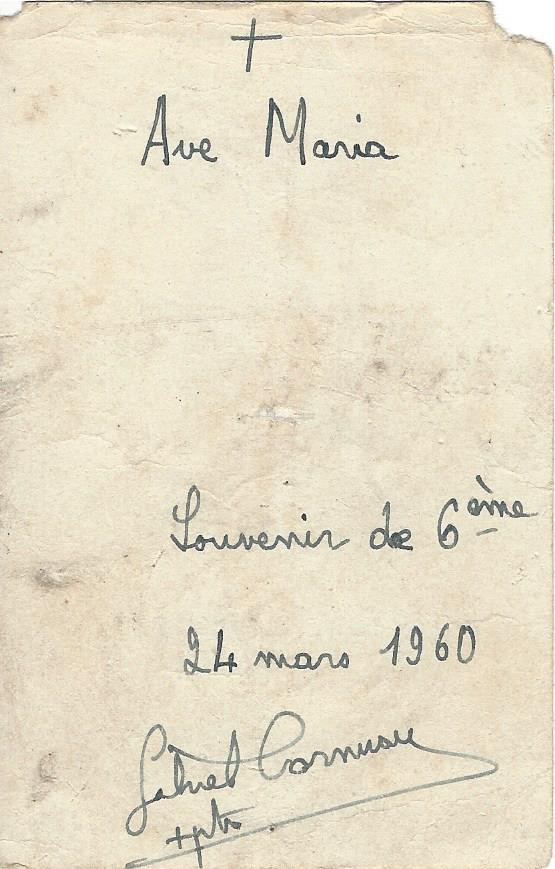 +
Ave Maria
Souvenir de 6ème
24 mars 1960
Gabriel
+ptr